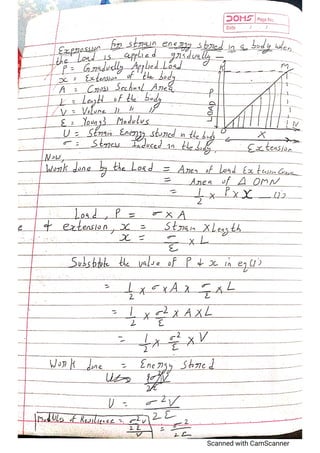 DOMS Page No.
Date / /
Expression for strain energy stored in a body when
the load is applied gradually –
P = Gradually Applied Load
x = Extension of the body
A = Cross Sectional Area
L = Length of the body
V = Volume " "
E = Young's Modulus
U = Strain Energy stored in the body
σ = Stress Induced in the body.
M
P
LOAD
O
N
x
Extension
Now,
Work done by the Load = Area of Load Extension Curve
= Area of Δ OMN
= 1/2 x P x X — (1)
Load, P = σ x A
& extension, x = Strain x Length
x = σ/E x L
Substitute the value of P & x in eq(1)
= 1/2 x σ x A x σ/E x L
= 1/2 x σ²/E x A x L
= 1/2 x σ²/E x V
Work done = Energy Stored
U = σ²V/2E
Modulus of Resilience = σ²V/2E/V = σ²/2E
Scanned with CamScanner